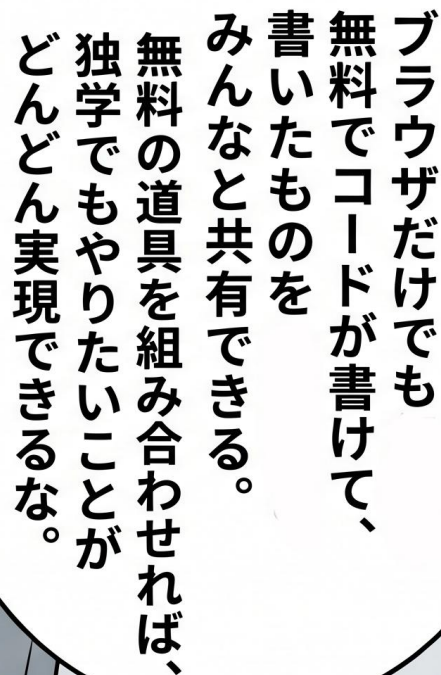 ブラウザだけでも
無料でコードが書けて、
書いたものを
みんなと共有できる。
無料の道具を組み合わせれば、
独学でもやりたいことが
どんどん実現できるな。